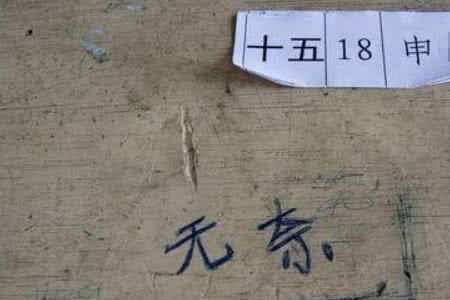 十五 18 申
无奈